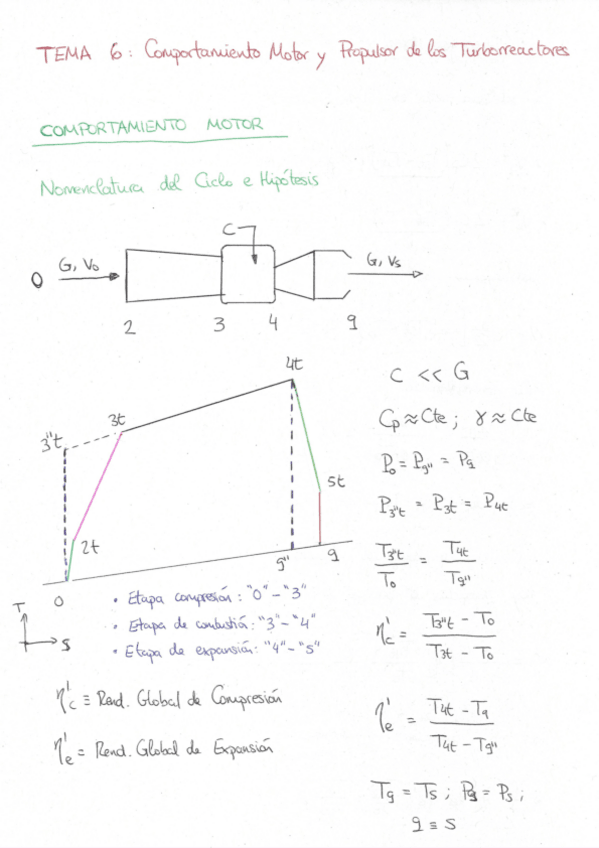 TEMA 6: Comportamiento Motor y Propulsor de los Turborreactores
COMPORTAMIENTO MOTOR
Nomenclatura del Ciclo e Hipótesis
C
0 G, V₀ G, Vs
2 3 4 9
4t
3t
3"t
5t
2t
0 9" 9
T
S
• Etapa compresión: "0"-"3"
• Etapa de combustión: "3"-"4"
• Etapa de expansión: "4"-"s"
η'c ≡ Rend. Global de Compresión
η'e = Rend. Global de Expansión
C << G
Cp ≈ Cte; γ ≈ Cte
P₀ = P9" = P9
P3"t = P3t = P4t
T3"t / T₀ = T4t / T9"
η'c = (T3"t - T₀) / (T3t - T₀)
η'e = (T4t - T9) / (T4t - T9")
T9 = Ts; P9 = Ps;
9 ≡ s